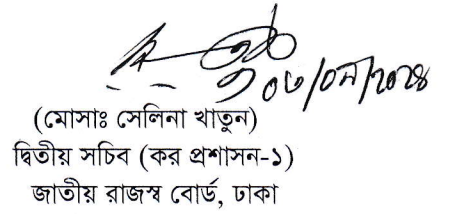 ০৩/০৯/২০২৪
(মোসাঃ সেলিনা খাতুন)
দ্বিতীয় সচিব (কর প্রশাসন-১)
জাতীয় রাজস্ব বোর্ড, ঢাকা